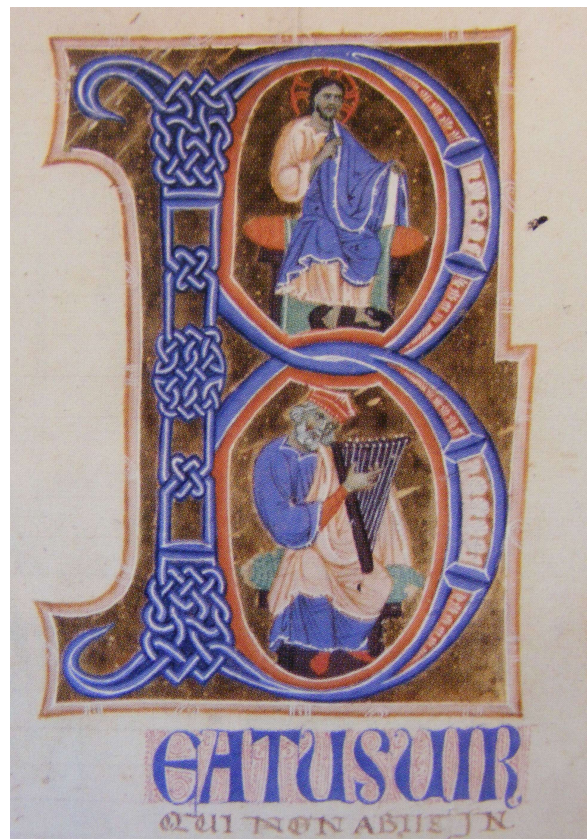 B
EATUSUIR
QUI NON ABIIT IN